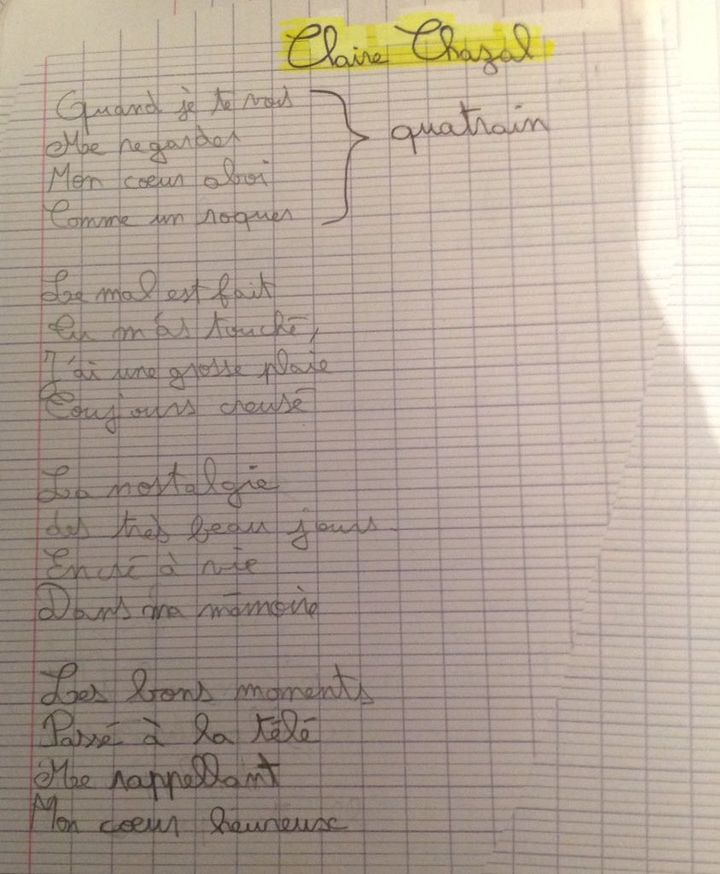 Claire Chazal
Quand je te vois
Me regarder
Mon coeur aboi
Comme un roquer
quatrain
Le mal est fait
Tu m'as touché,
J'ai une grosse plaie
Toujours creusé
La nostalgie
des très beau jours
Encré à vie
Dans ma mémoire
Les bons moments
Passé à la télé
Me rappellant
Mon coeur heureuse